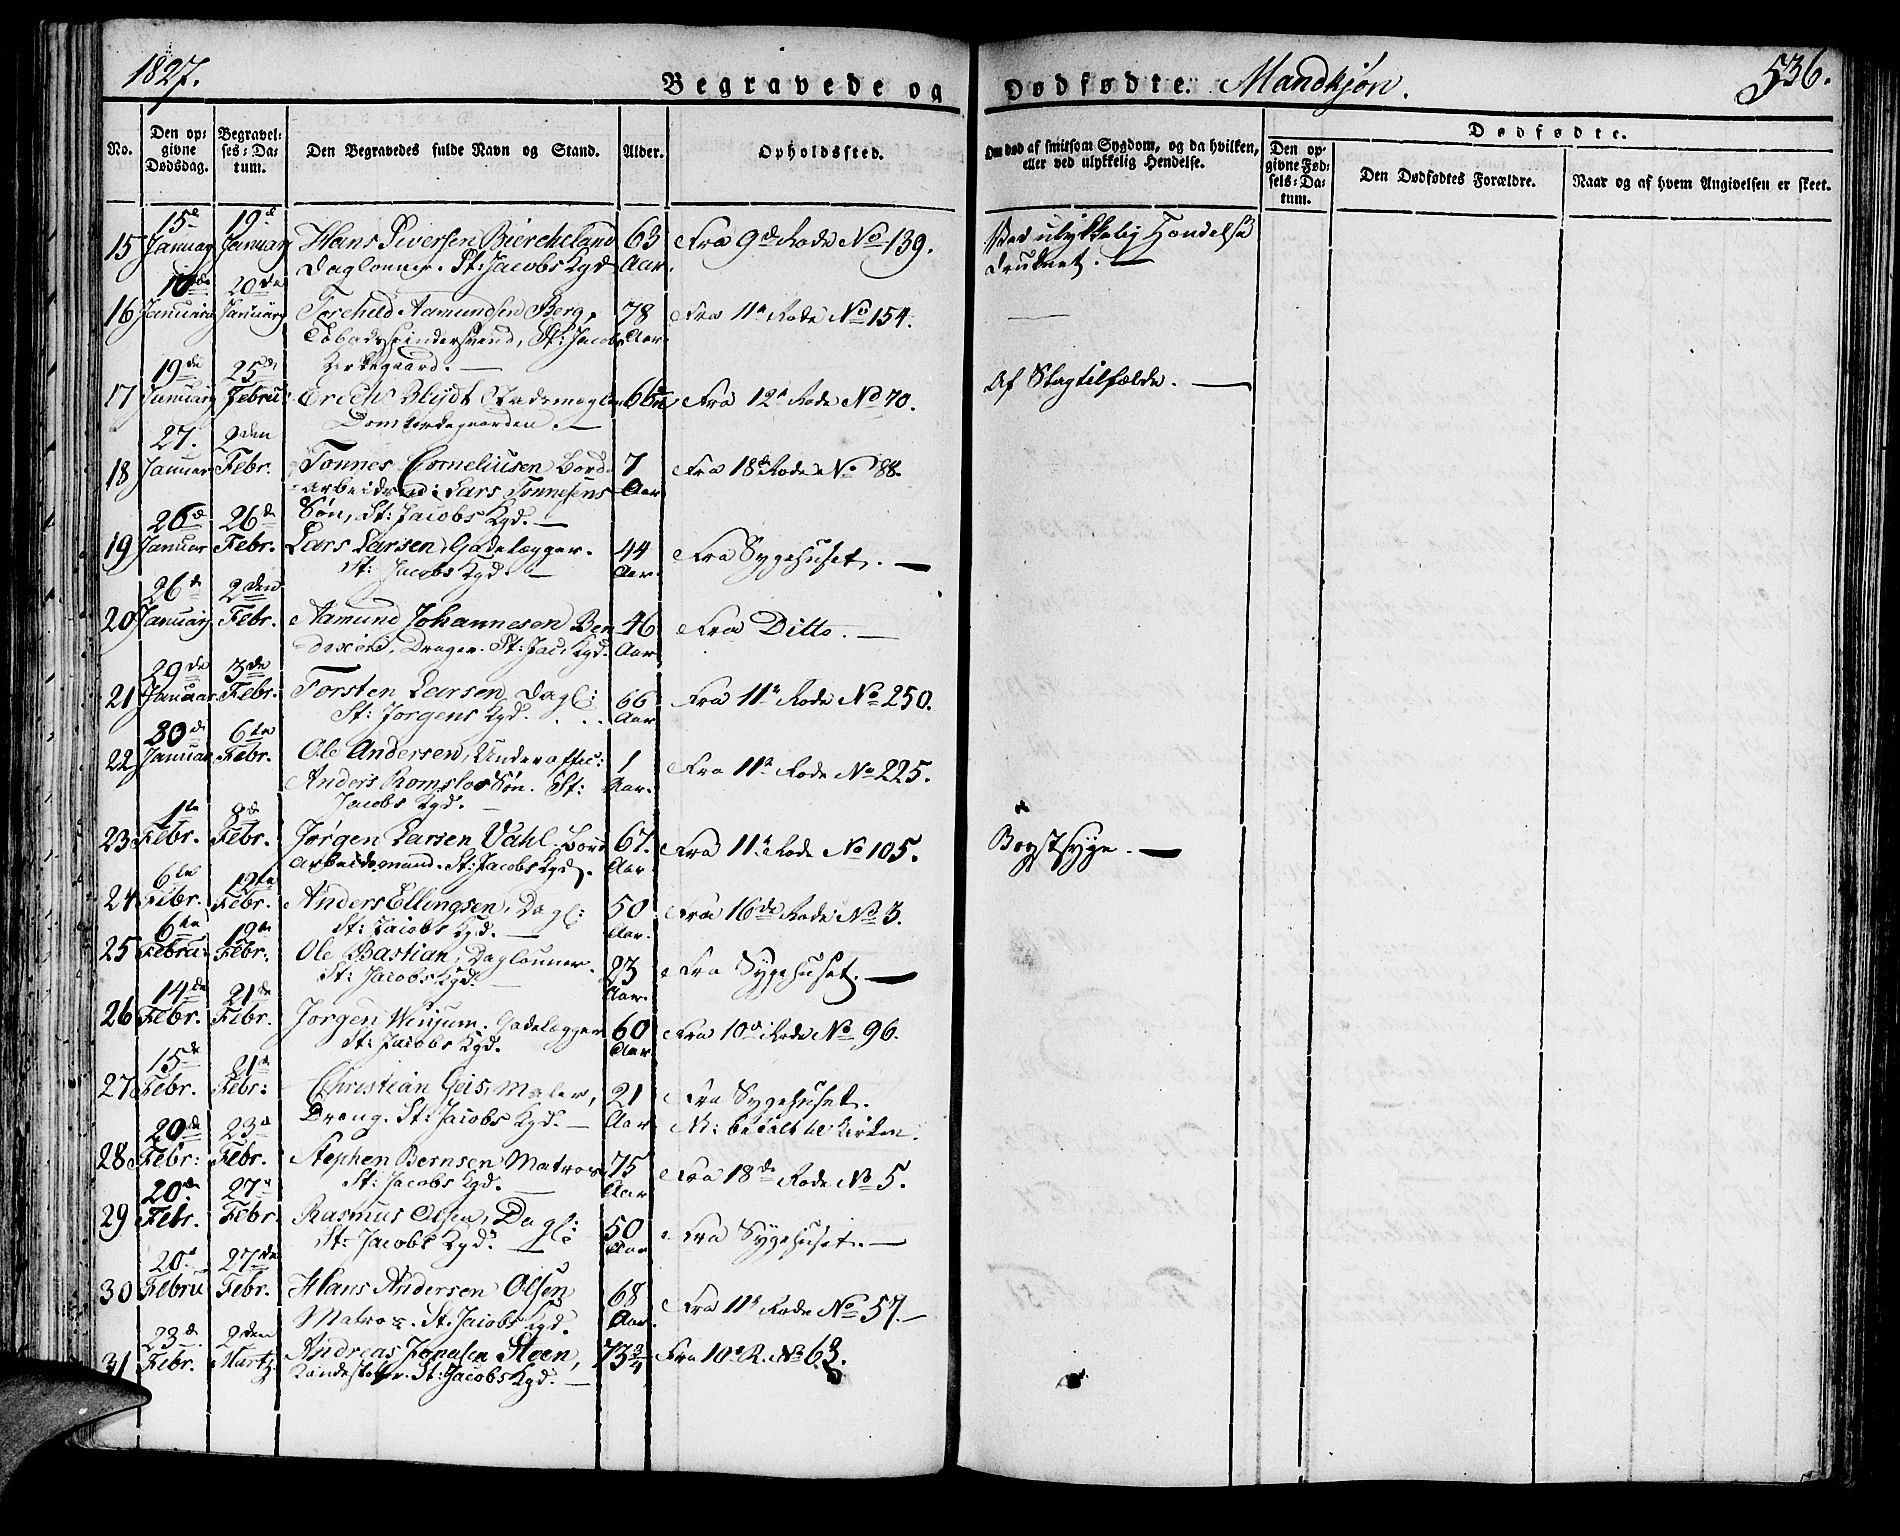 1827.
Begravede og Dødfødte. Mandkjøn.
536.
No.
Den opgivne Dødsdag.
Begravelses-Datum.
Den Begravedes fulde Navn og Stand.
Alder.
Opholdssted.
Om død af smitsom Sygdom, og da hvilken, eller ved ulykkelig Hendelse.
Dødfødte.
Den opgivne Fødsels-Datum.
Den Dødfødtes Forældre.
Naar og af hvem Angivelsen er skeet.
15 15de Januar 19de Januar Hans Siversen Biercheland 63 Aar Fra 9de Rode No 139. Ved ulykkelig Hændelse druknet.
Daglønner. St: Jacobs Kgd
16 Januar 20de Januar Torchild Aamundsen Berg, 78 Aar Fra 11te Rode No 154.
Tobaksspindersvend, St: Jacobs
Kirkegaard.
17 19de Januar 25de Febru: Erichs Blydt Stadsmægler Fra 12te Rode No 70. Af Slagtilfælde.
Domkirkegaarden.
18 27. Januar 2den Febr. Tonnes Corneliusen Bord- 7 Aar Fra 18de Rode No 88.
arbeidsmd: Lars Tonnesens
Søn, St: Jacobs Kgd.
19 26de Januar 26de Febr. Lars Larsen, Gadelægger. 44 Aar. Fra Sygehuset.
St: Jacobs Kgd.
20 26de Januar 2den Febr. Aamund Johannesen Ben- 46 Aar Fra Ditto.
Drager. St: Jac: Kgd.
21 29de Januar 3de Febr. Torsten Larsen, Dagl: 66 Aar Fra 11te Rode No 250.
St: Jørgens Kgd.
22 30de Januar 6te Febr. Ole Andersen, Underoffic: 1 Aar. Fra 11te Rode No 225.
Anders Romslos Søn. St:
Jacobs Kgd.
23 1te Febr. 8de Febr. Jørgen Larsen Vahl, Bord- 67. Aar. Fra 11te Rode No 105. Brystsyge.
arbeidsmand. St: Jacobs Kgd.
24 6te Febr. 12te Febr. Anders Ellingsen, Dagl: 50 Aar. Fra 16de Rode No 3.
St: Jacobs Kgd.
25 6te Febru: Febr. Ole Bastian, Daglønner. 23 Aar. Fra Sygehuset.
St: Jacobs Kgd.
26 14de Febr. 21de Febr. Jørgen Winjum. Gadelægger 60 Aar Fra 10de Rode No 96.
St: Jacobs Kgd.
27 15de Febr. 21de Febr: Christian Geis, Maler, 21 Aar Fra Sygehuset.
Dreng. St: Jacobs Kgd. betalt til Kirken.
28 20de Febr: 23de Febr. Stephen Bernsen Matros 75 Aar Fra 18de Rode No 5.
St: Jacobs Kgd.
29 20de Febr. 27de Febr. Rasmus Olsen, Dagl: 50 Aar Fra Sygehuset.
St: Jacobs Kgd.
30 20de Febru 27de Febr. Hans Andersen Olsen 68 Aar. Fra 11te Rode No 57.
Matros. St: Jacobs Kgd.
31 23de Febr. 2den Martz Andreas Jonasen Steen, 73 3/4 Fra 10de R. No 63.
Kandestøber. St: Jacobs Kgd.